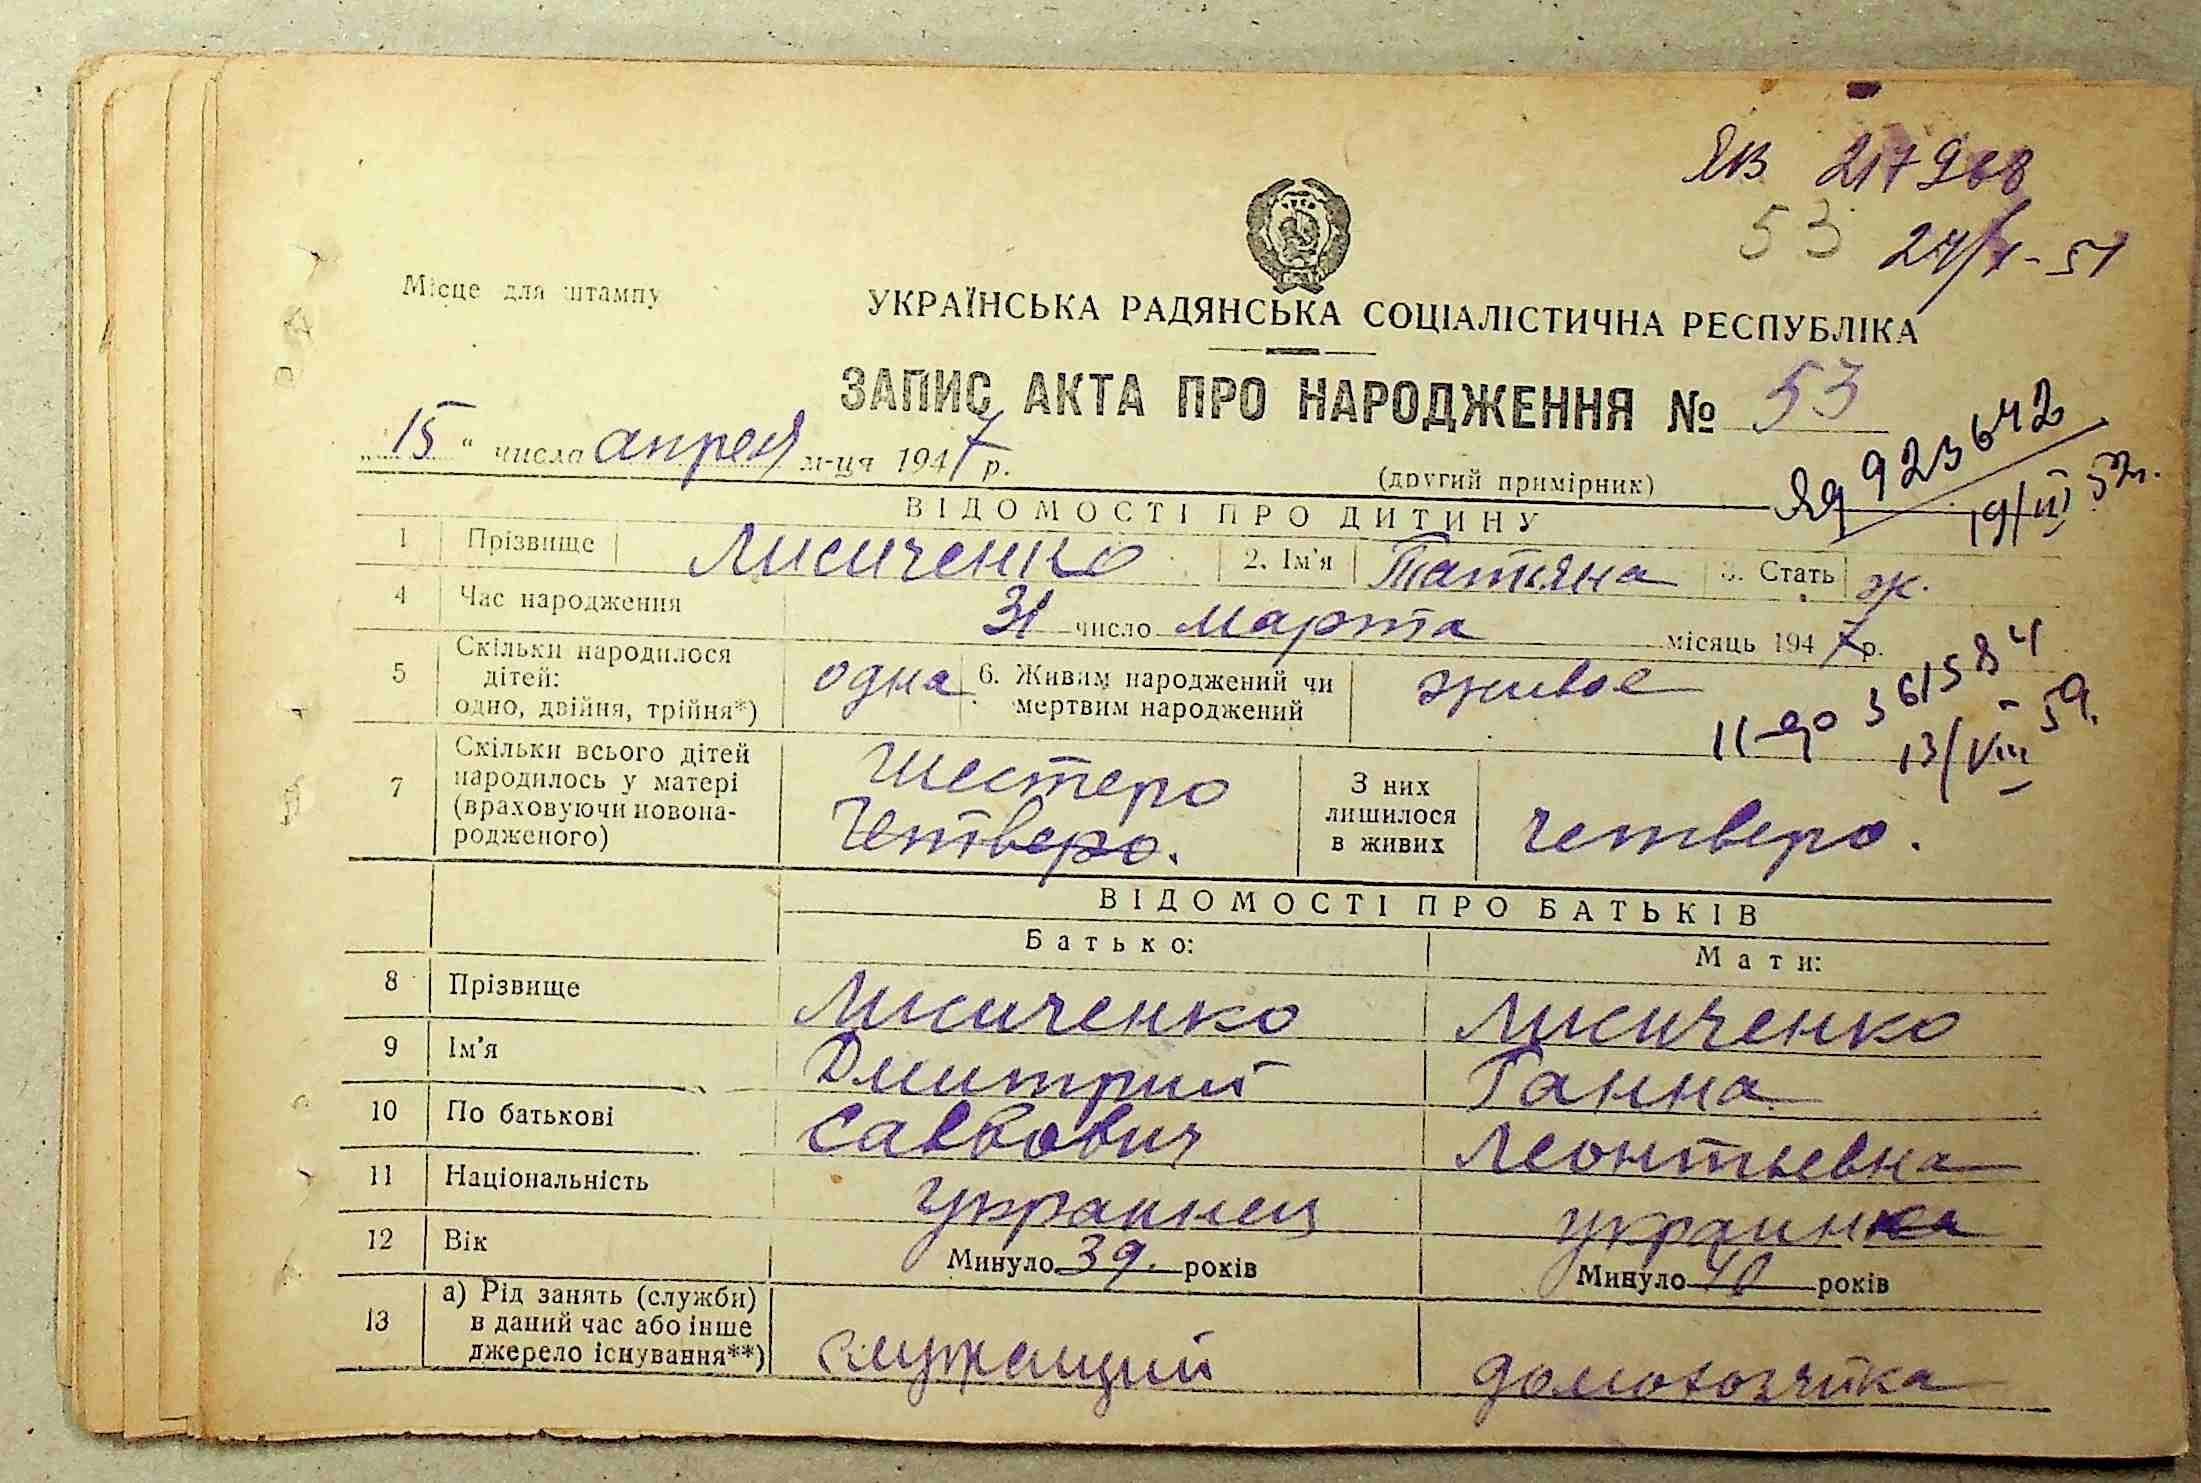 ЯВ 217988
53
24/X-51
Місце для штампу
УКРАЇНСЬКА РАДЯНСЬКА СОЦІАЛІСТИЧНА РЕСПУБЛІКА
ЗАПИС АКТА ПРО НАРОДЖЕННЯ № 53
„15“ числа апреля м-ця 1947 р.
(другий примірник)
923642
19/III 52г.
ВІДОМОСТІ ПРО ДИТИНУ
1 Прізвище Лисиченко 2. Ім'я Татьяна 3. Стать ж.
4 Час народження 31 число марта місяць 1947 р.
5 Скільки народилося дітей: одно, двійня, трійня*) одна 6. Живим народжений чи мертвим народжений живое
361584
13/VIII 59.
7 Скільки всього дітей народилось у матері (враховуючи новона-родженого) шестеро Четверо. З них лишилося в живих четверо.
ВІДОМОСТІ ПРО БАТЬКІВ
Батько: Мати:
8 Прізвище Лисиченко Лисиченко
9 Ім'я Дмитрий Ганна
10 По батькові Саввович Леонтьевна
11 Національність украинец украинка
12 Вік Минуло 39. років Минуло 40 років
13 а) Рід занять (служби) в даний час або інше джерело існування**) служащий домохозяйка